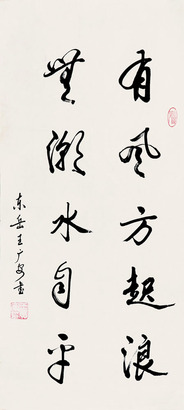 有风方起浪
無潮水自平
东岳王广安书